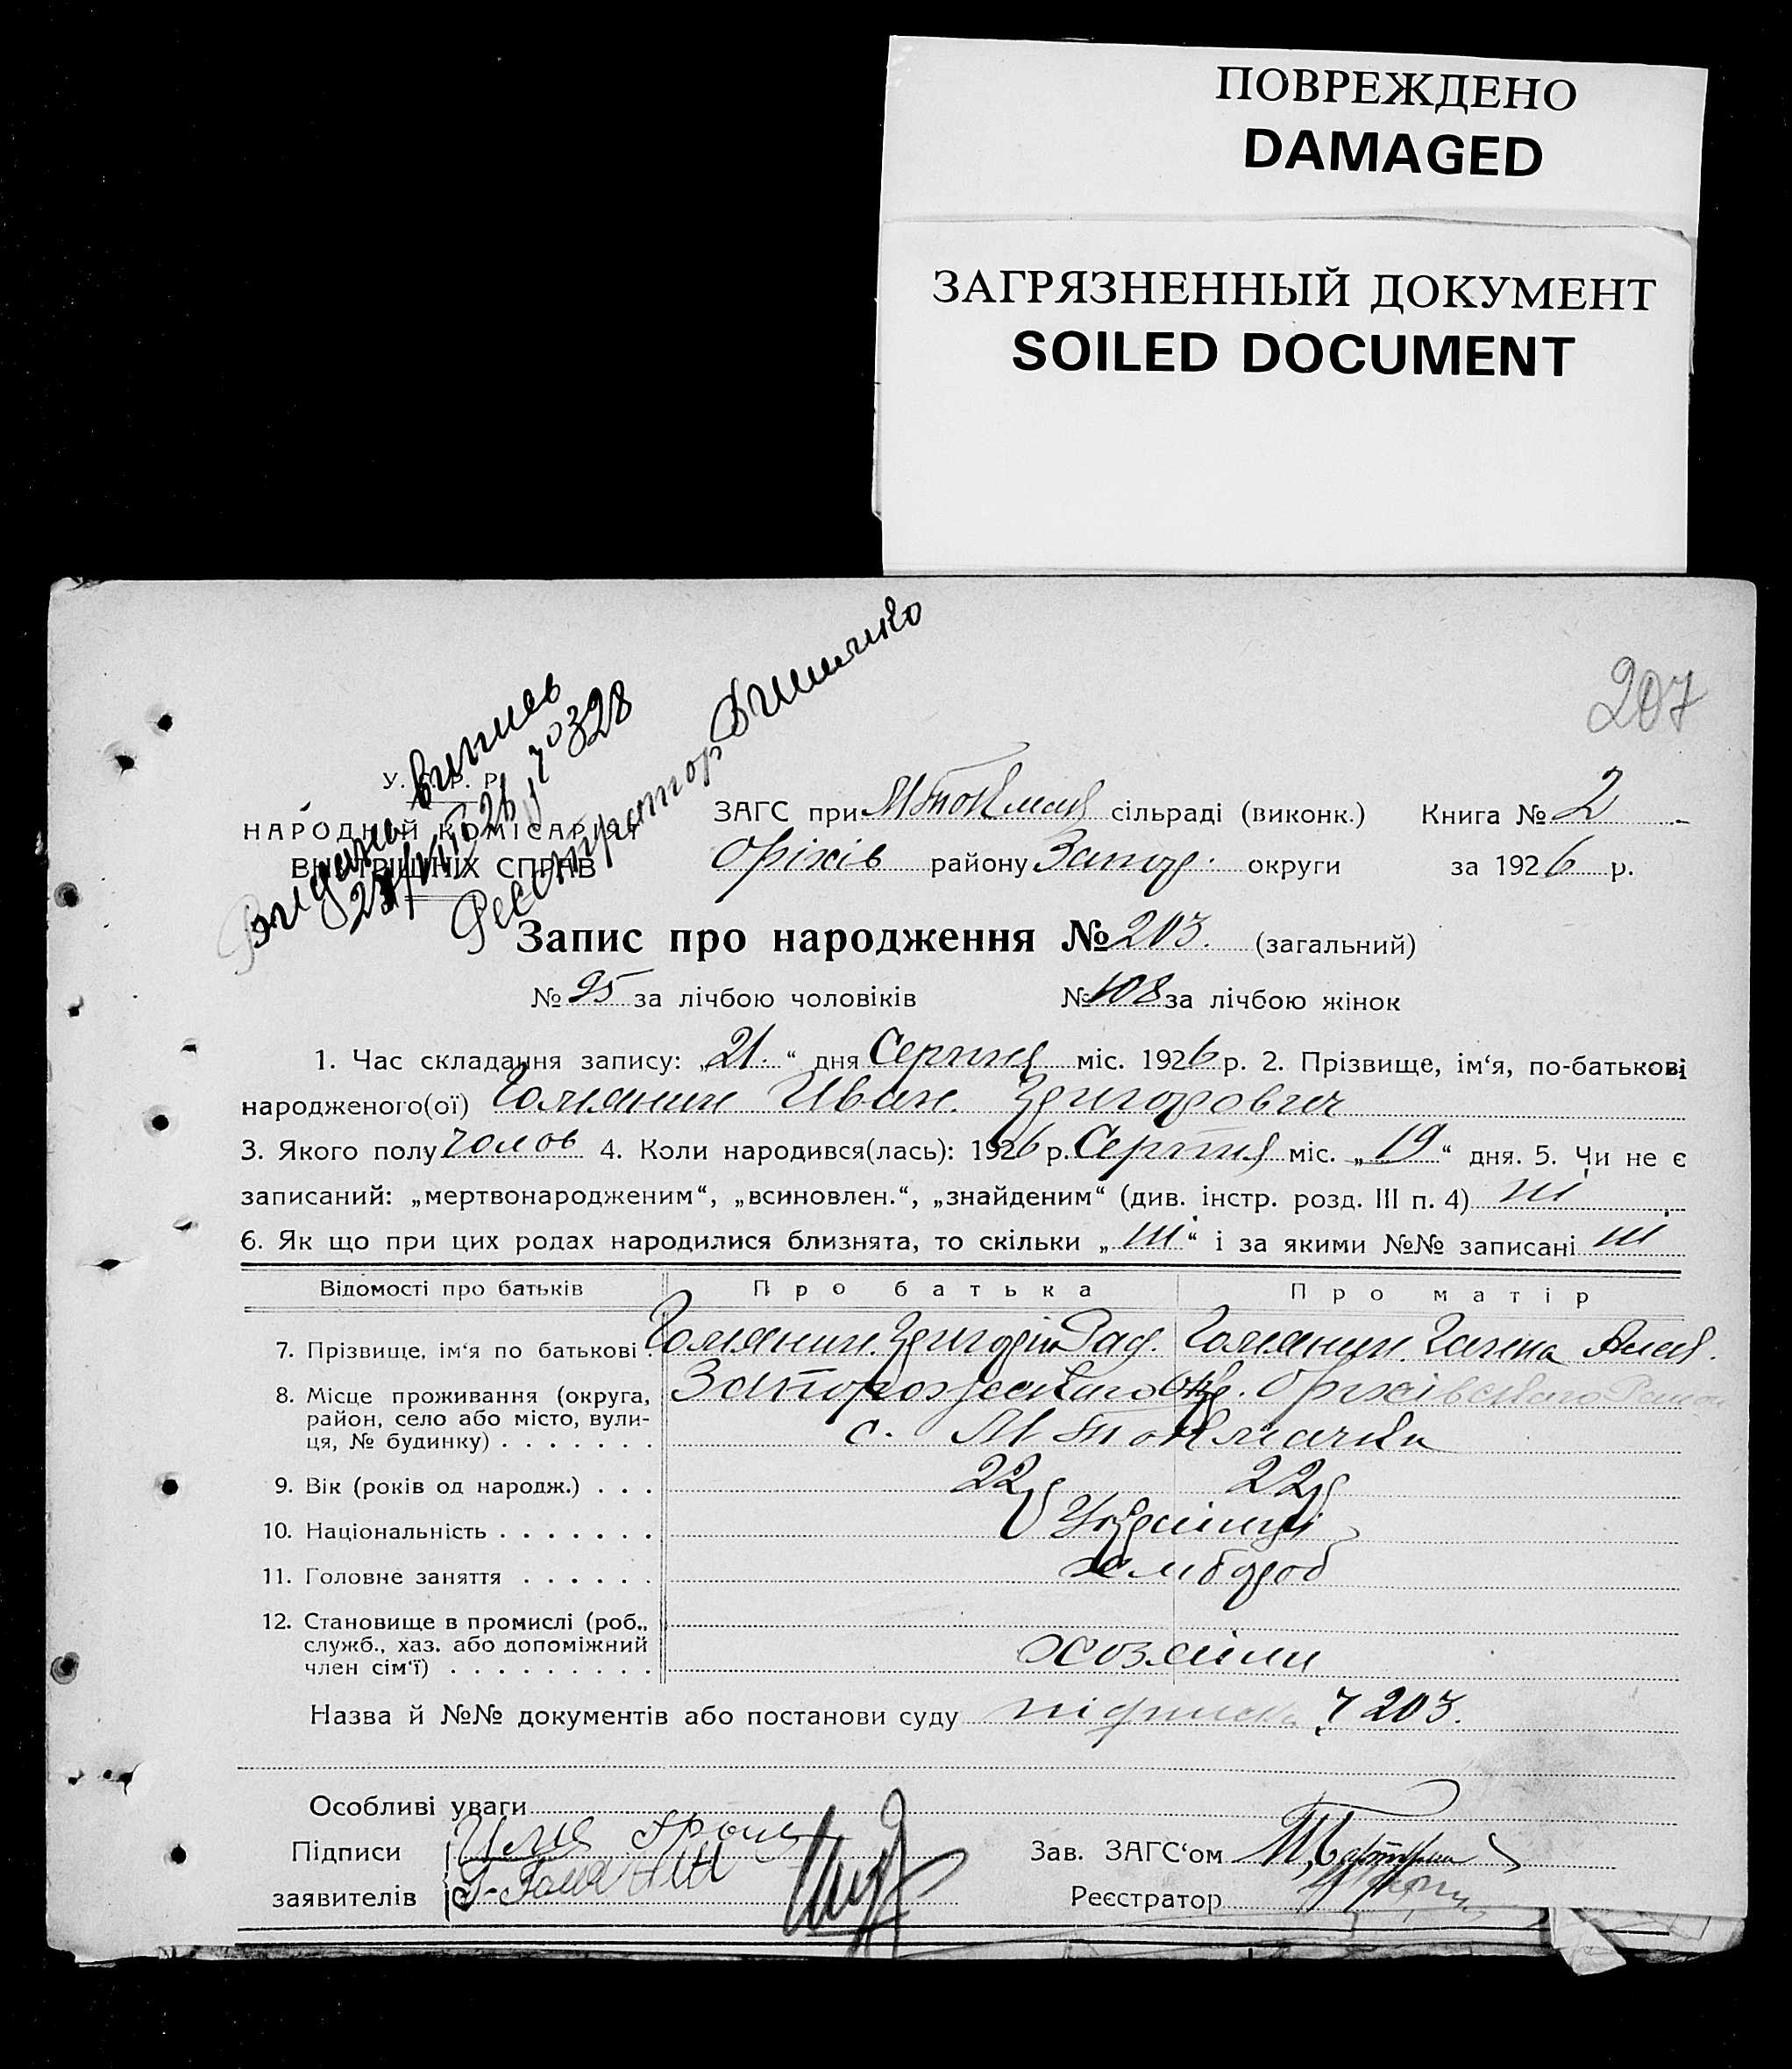 ПОВРЕЖДЕНО
DAMAGED
ЗАГРЯЗНЕННЫЙ ДОКУМЕНТ
SOILED DOCUMENT
207
Видано виписъ
Реєстратор
У. С. Р. Р.
НАРОДНІЙ КОМІСАРІЯТ
ВНУТРІШНІХ СПРАВ
ЗАГС при МТокмац сільраді (виконк.) Книга № 2
Оріхів району Запор. округи за 1926 р.
Запис про народження № 203. (загальний)
№ 95 за лічбою чоловіків № 108 за лічбою жінок
1. Час складання запису: „21.“ дня Серпня міс. 1926 р. 2. Прізвище, ім‘я, по-батькові
народженого(ої) Голянин Иван Григорович
3. Якого полу чолов 4. Коли народився(лась): 1926 р. Серпня міс. „19“ дня. 5. Чи не є
записаний: „мертвонародженим“, „всиновлен.“, „знайденим“ (див. інстр. розд. III п. 4) ні
6. Як що при цих родах народилися близнята, то скільки „ні“ і за якими №№ записані ні
Відомості про батьків Про батька Про матір
7. Прізвище, ім‘я по батькові . Голянин Григорій Голянин
8. Місце проживання (округа, Запорожского Окр. Оріхівского Району
район, село або місто, вули-
ця, № будинку) . . . . . . . с. М Токмачки
9. Вік (років од народж.) . . . 22 22
10. Національність . . . . . . . Українці
11. Головне заняття . . . . . . хлибороб
12. Становище в промислі (роб.,
служб., хаз. або допоміжний
член сім‘ї) . . . . . . . . . хозяїни
Назва й №№ документів або постанови суду підписка 203.
Особливі уваги
Підписи
заявителів
Зав. ЗАГС‘ом
Реєстратор